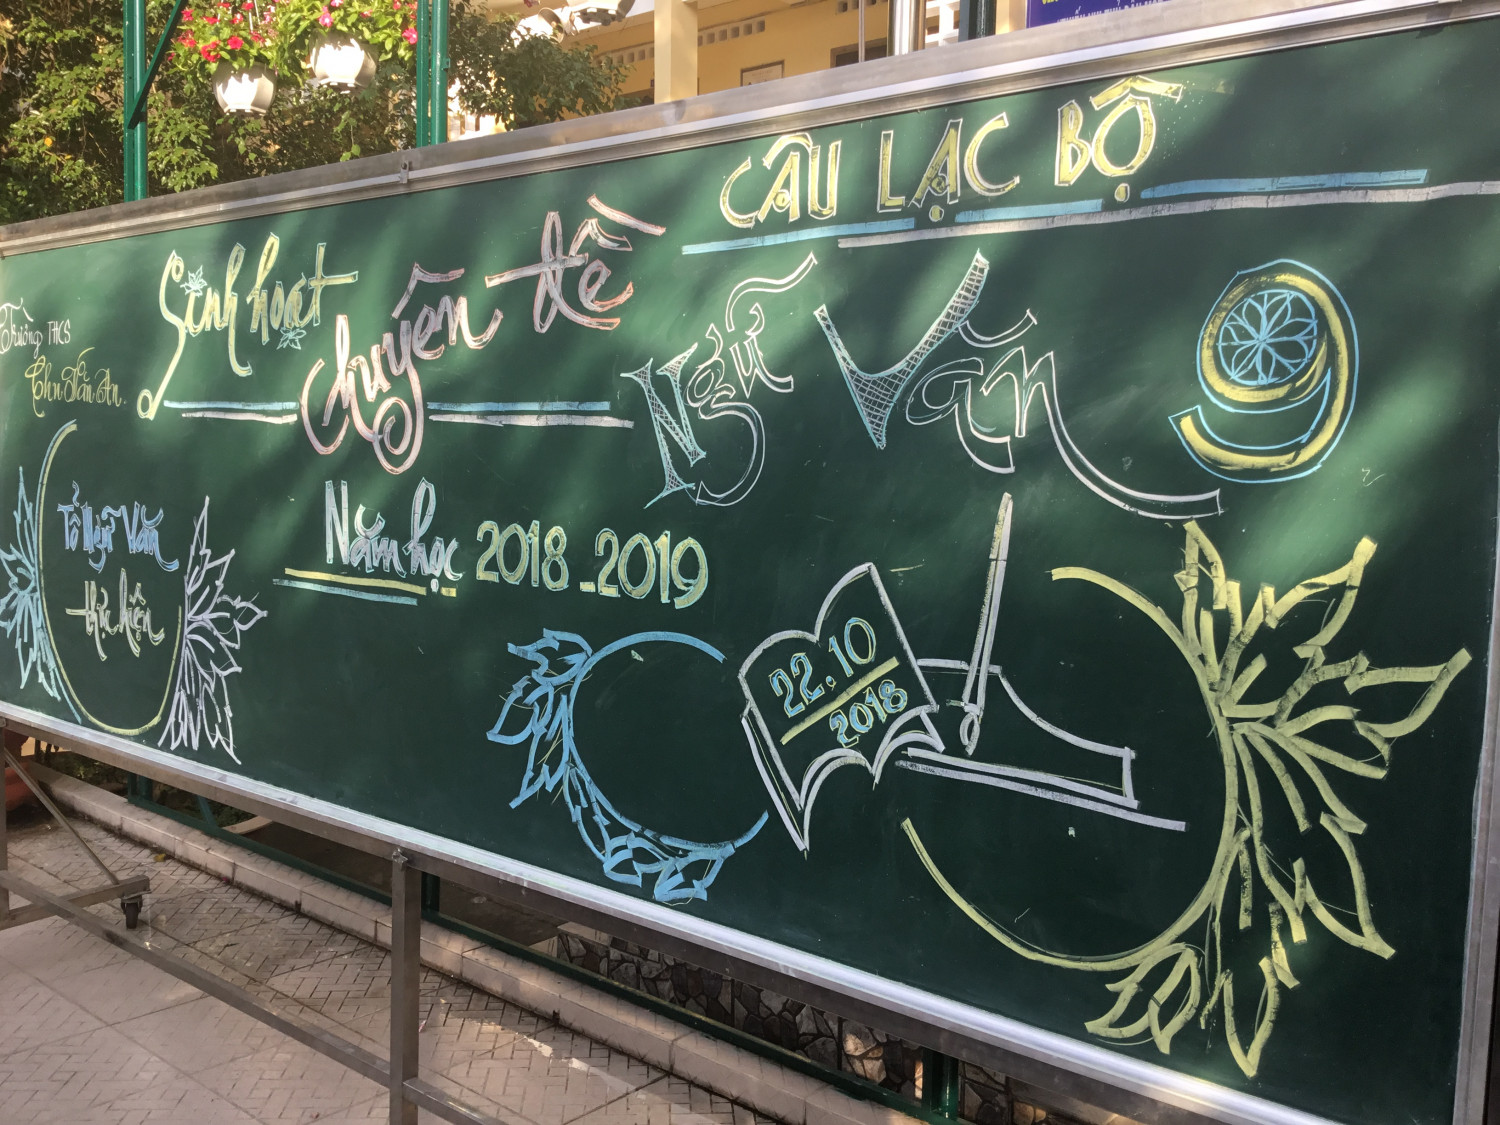 Trường THCS
Chu Văn An.
Sinh hoạt
chuyên đề
CÂU LẠC BỘ
Ngữ Văn 9
Năm học 2018-2019
Tổ Ngữ Văn
thực hiện
22.10
2018